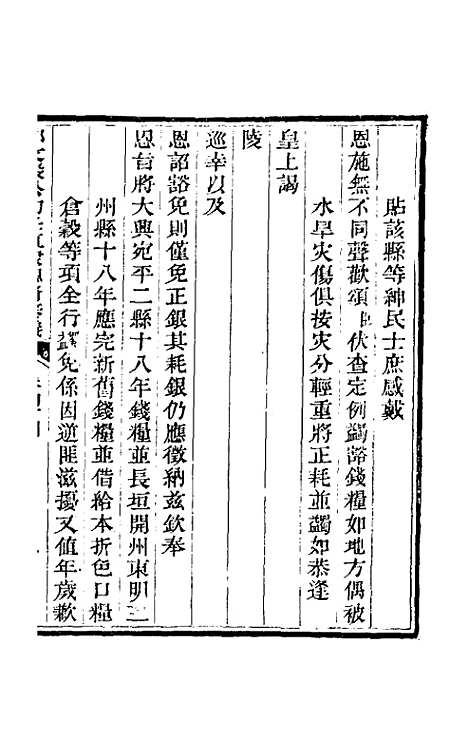 貼該縣等紳民士庶感戴
恩施無不同聲歡頌臣伏查定例蠲豁錢糧如地方偶被
水旱灾傷俱按灾分輕重將正耗並蠲如恭逢
皇上謁
陵
巡幸以及
恩詔豁免則僅免正銀其耗銀仍應徵納兹欽奉
恩旨將大興宛平二縣十八年錢糧並長垣開州東明三
州縣十八年應完新舊錢糧並借給本折色口糧
倉穀等項全行蠲免係因逆匪滋擾又值年歲歉